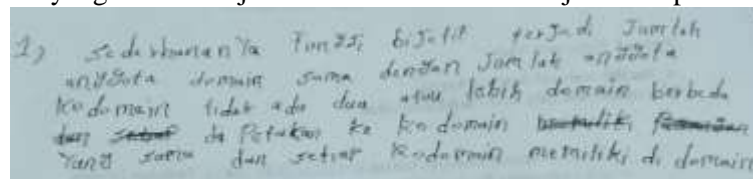 1) sederhananya Fungsi bijektif terjadi Jumlah
anggota domain sama dengan Jumlah anggota
kodomain tidak ada dua atau lebih domain berbeda
di Petakan ke kodomain
Yang sama dan setiap kodomain memiliki di domain